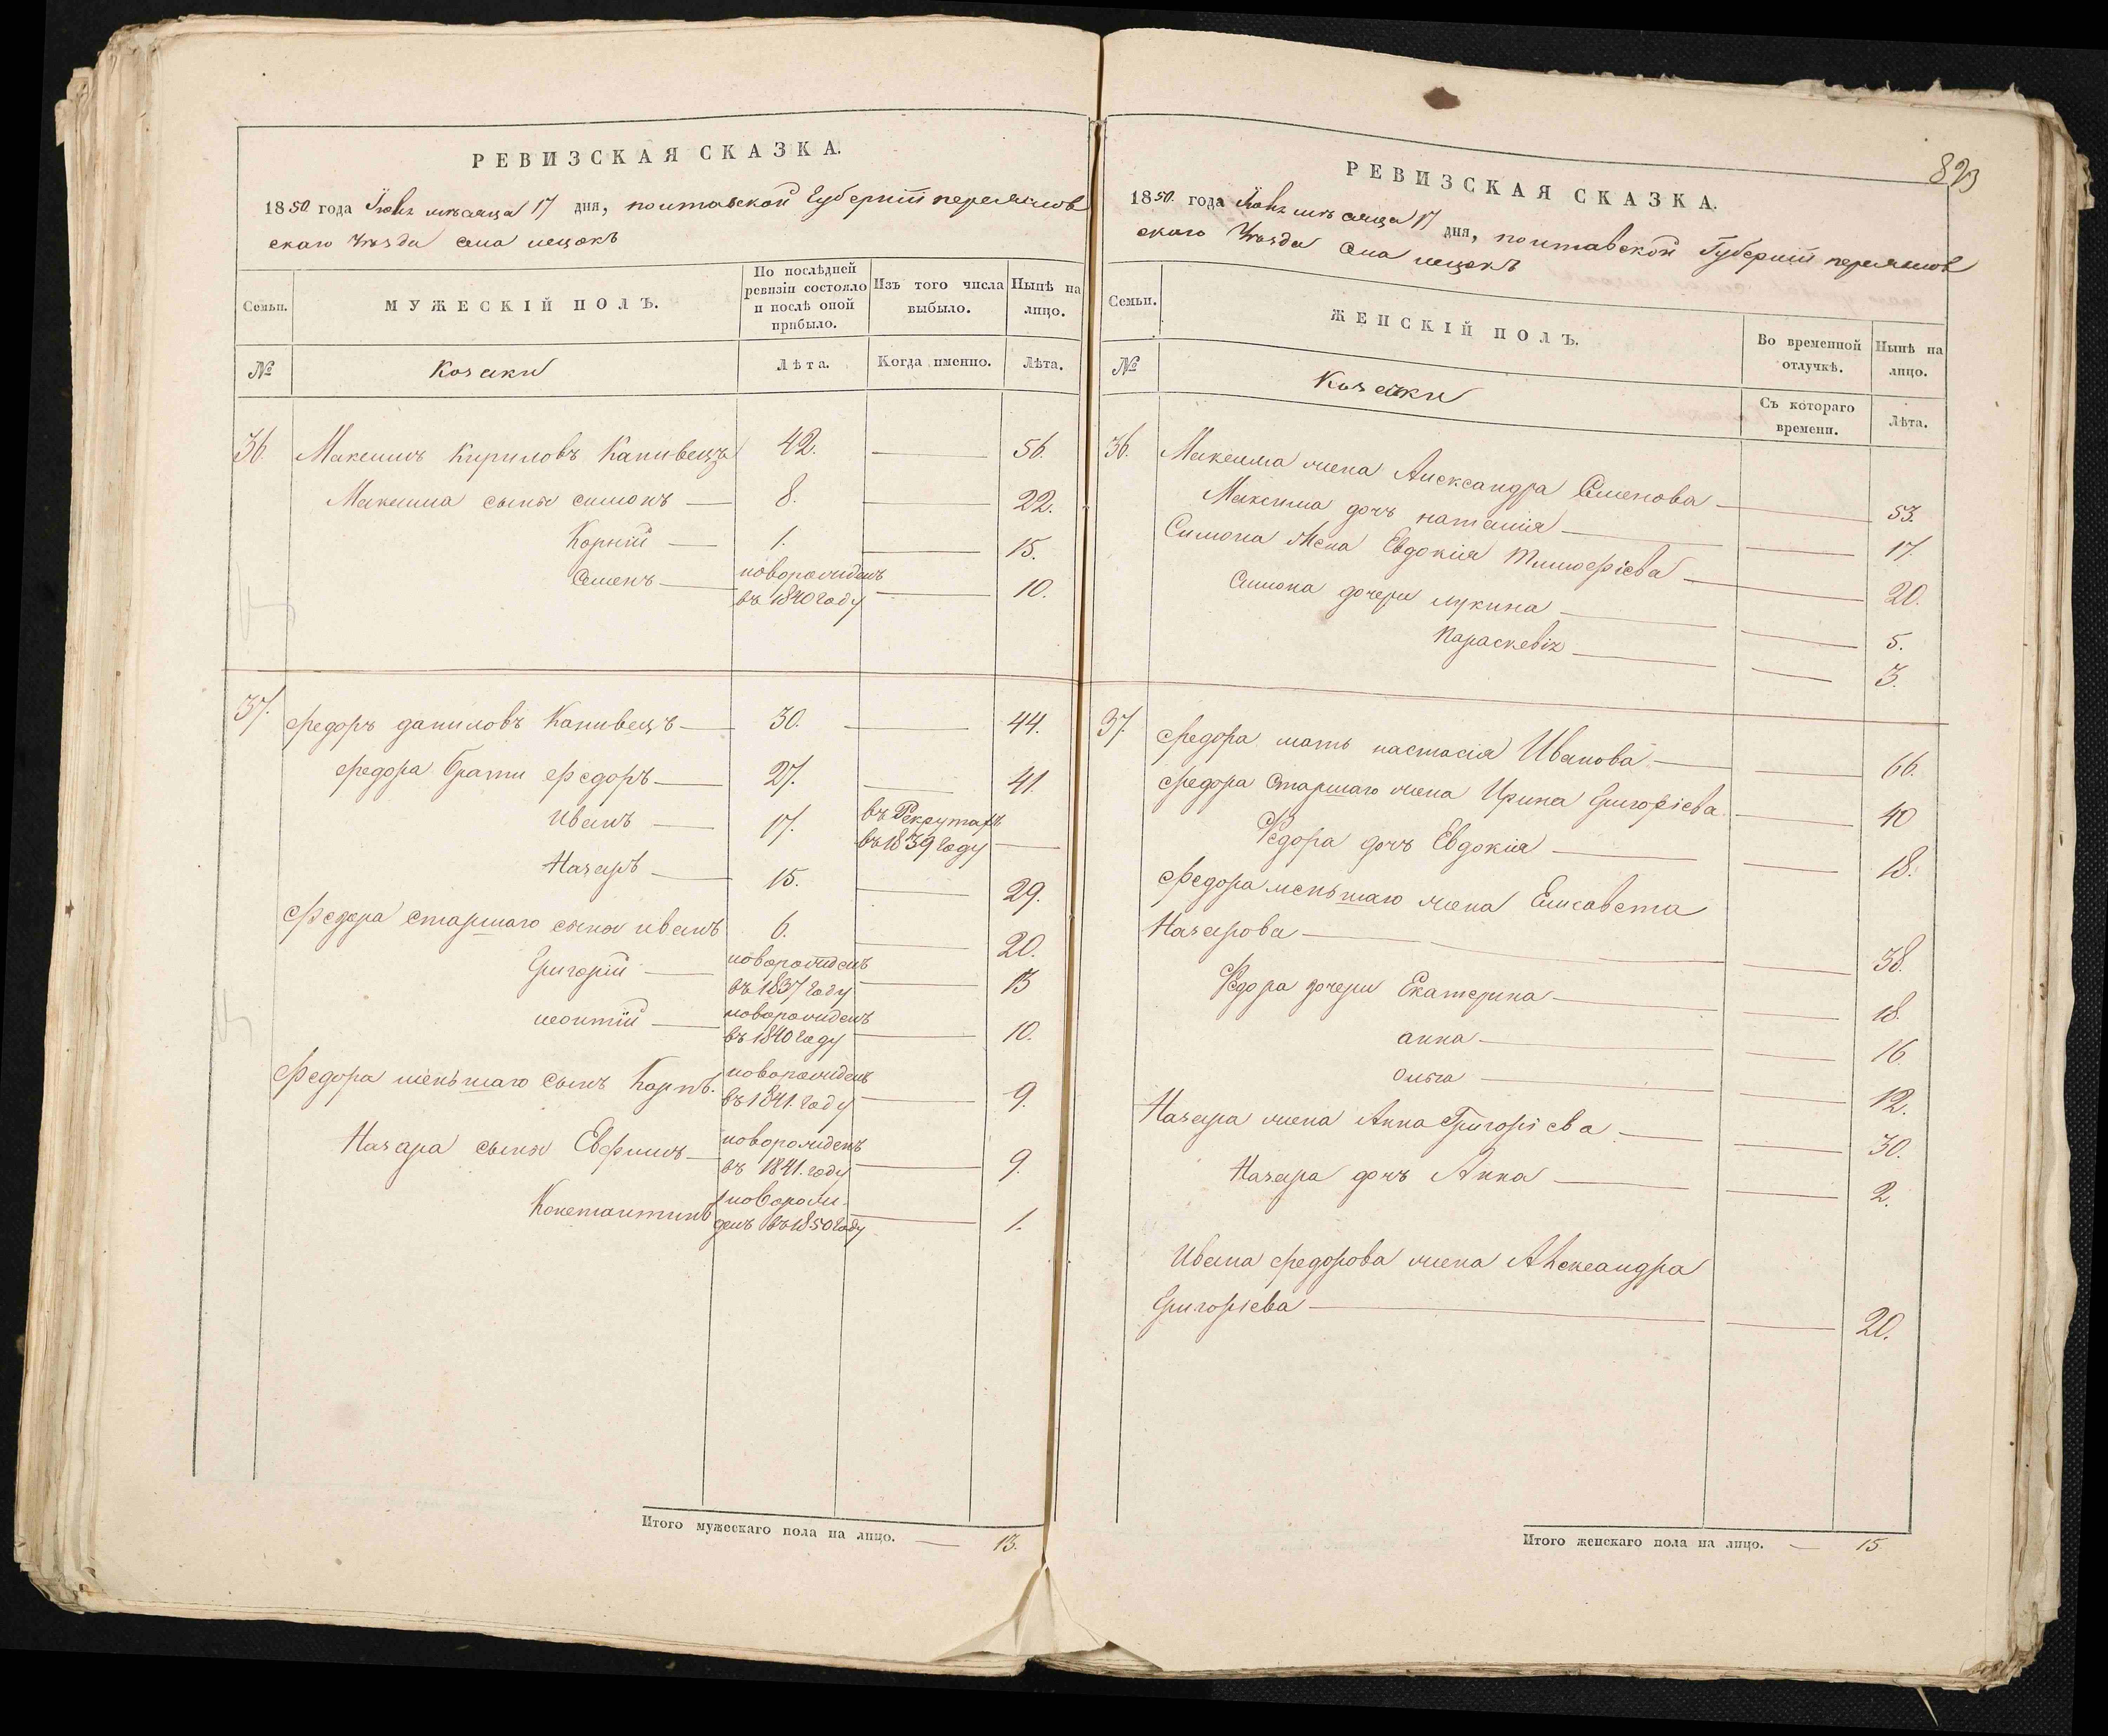 РЕВИЗСКАЯ СКАЗКА.
1850 года Іюнь мѣсяца 17 дня, полтавской Губерніи переяслов
скаго Уѣзда села
Семьи.
МУЖЕСКІЙ ПОЛЪ.
По послѣдней
ревизіи состояло
и послѣ оной
прибыло.
Изъ того числа
выбыло.
Нынѣ на
лицо.
№
Козаки
Лѣта.
Когда именно.
Лѣта.
36. Максимъ Кириловъ Каневецъ 42. — 56.
Максима сыны симонъ — 8. — 22.
Корній — 1. — 15.
Семенъ — новорожденъ
въ 1840 году — 10.
37. Федоръ даниловъ Каневецъ — 30. — 44.
Федора братъи федоръ — 27. — 41.
Иванъ — 17. въ Рекрутахъ
въ 1839 году —
Назаръ — 15. — 29.
Федора старшаго сыны иванъ 6. — 20.
Григорій — новорожденъ
въ 1837 году — 13
леонтій — новорожденъ
въ 1840 году — 10.
Федора меньшаго сынъ Карпъ. новорожденъ
въ 1841. году — 9.
Назара сыны Евфимъ — новорожденъ
въ 1841. году — 9.
Константинъ новорож
денъ въ 1850 году — 1.
Итого мужескаго пола на лицо. — 13.
823
РЕВИЗСКАЯ СКАЗКА.
1850. года Іюнь мѣсяца 17 дня, полтавской Губерніи переяслов
скаго Уѣзда села
Семьи.
ЖЕНСКІЙ ПОЛЪ.
Во временной
отлучкѣ.
Нынѣ на
лицо.
№
Козачки
Съ котораго
времени.
Лѣта.
36. Максима жена Александра Семенова — 53.
Максима дочь наталія — 17.
Симона жена Евдокія Тимофіева — 20.
Симона дочери лукина — 5.
Параскевія — 3.
37. Федора мать настасія Иванова — 66.
Федора старшаго жена Ирина Григоріева — 40
Федора дочь Евдокія — 18.
Федора меньшаго жена Елисавета
Назарова — 38.
Федора дочери Екатерина — 18.
анна — 16
Ольга — 12.
Назара жена Анна Григоріева — 30.
Назара дочь Анна — 2.
Ивана федорова жена Александра
Григоріева — 20.
Итого женскаго пола на лицо. — 15